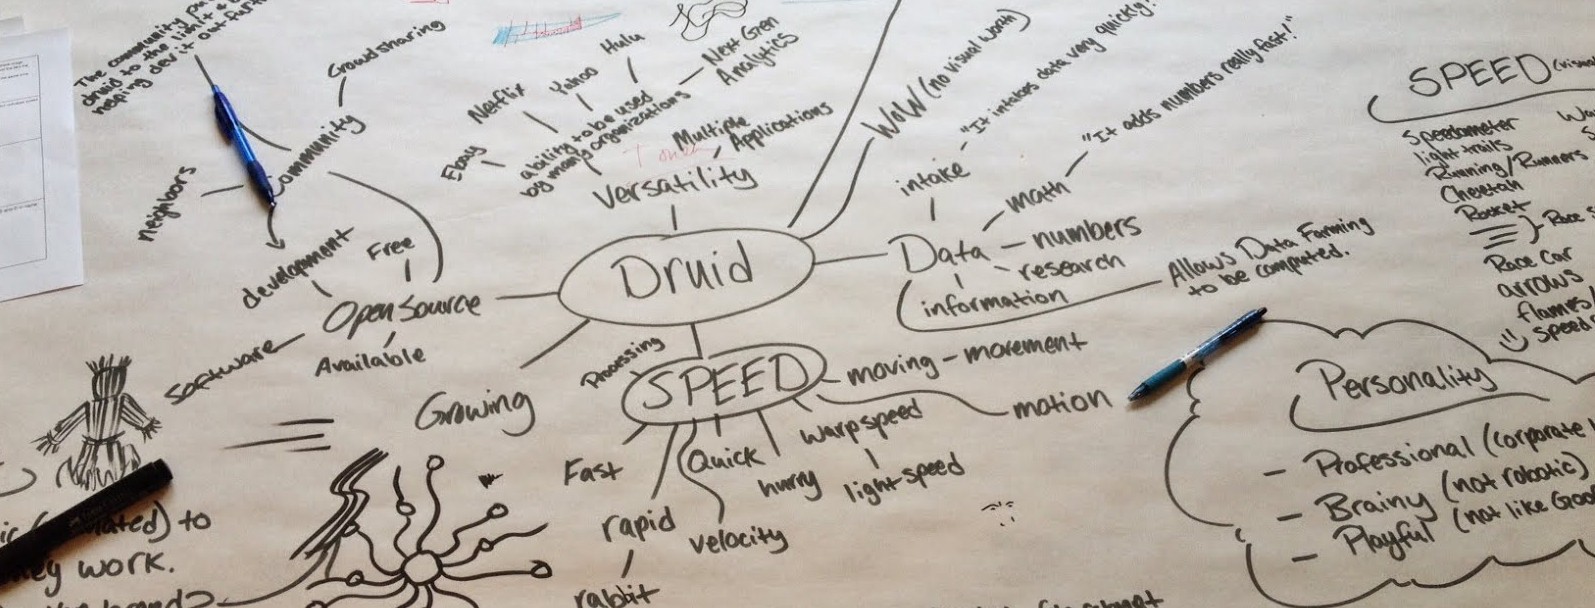 The community pu
druid to the light &
helping dev it out furt
Crowdsharing
Community
neighbors
development
Free
Open Source
Software
Available
Netflix
Yahoo
Hulu
Next Gen
Analytics
Ebay
ability to be used
by many organizations
Multiple
Applications
Versatility
Druid
WOW (no visual worth)
"It intakes data very quickly!"
"It adds numbers really fast!"
intake
math
Data
numbers
research
information
Allows Data Farming
to be computed.
Growing
Processing
SPEED
moving - movement
motion
warp speed
light speed
hurry
Quick
velocity
Fast
rapid
rabbit
SPEED (visua
Speedometer
light trails
Running/Runners
Cheetah
Rocket
Race
Race Car
arrows
flames/
Speed
Personality
- Professional (corporate
- Brainy (not robotic)
- Playful (not like Goo
ated) to
ey work.